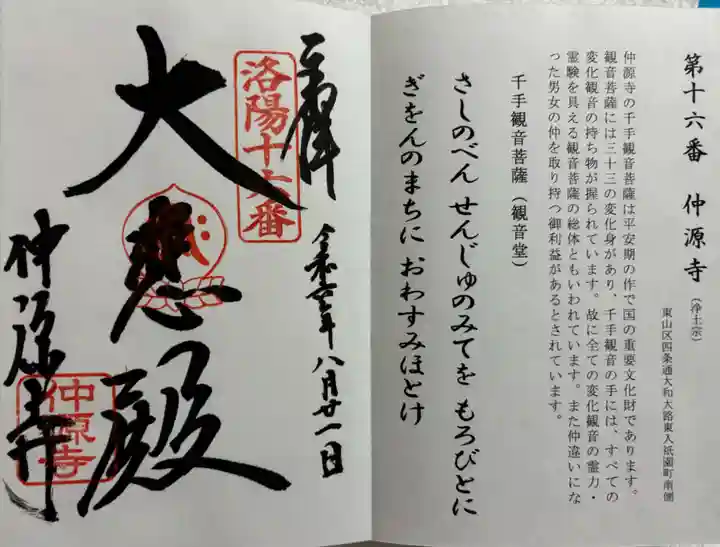 第十六番 仲源寺(浄土宗)
東山区四条通大和大路東入祇園町南側
仲源寺の千手観音菩薩は平安期の作で国の重要文化財であります。
観音菩薩には三十三の変化身があり、千手観音の手には、すべての
変化観音の持ち物が握られています。故に全ての変化観音の霊力・
霊験を具える観音菩薩の総体ともいわれています。また仲違いにな
った男女の仲を取り持つ御利益があるとされています。
千手観音菩薩(観音堂)
さしのべん せんじゅのみてを もろびとに
ぎをんのまちに おわすみほとけ
奉拝
洛陽十六番
八月廿一日
大悲殿
仲源寺
仲源寺